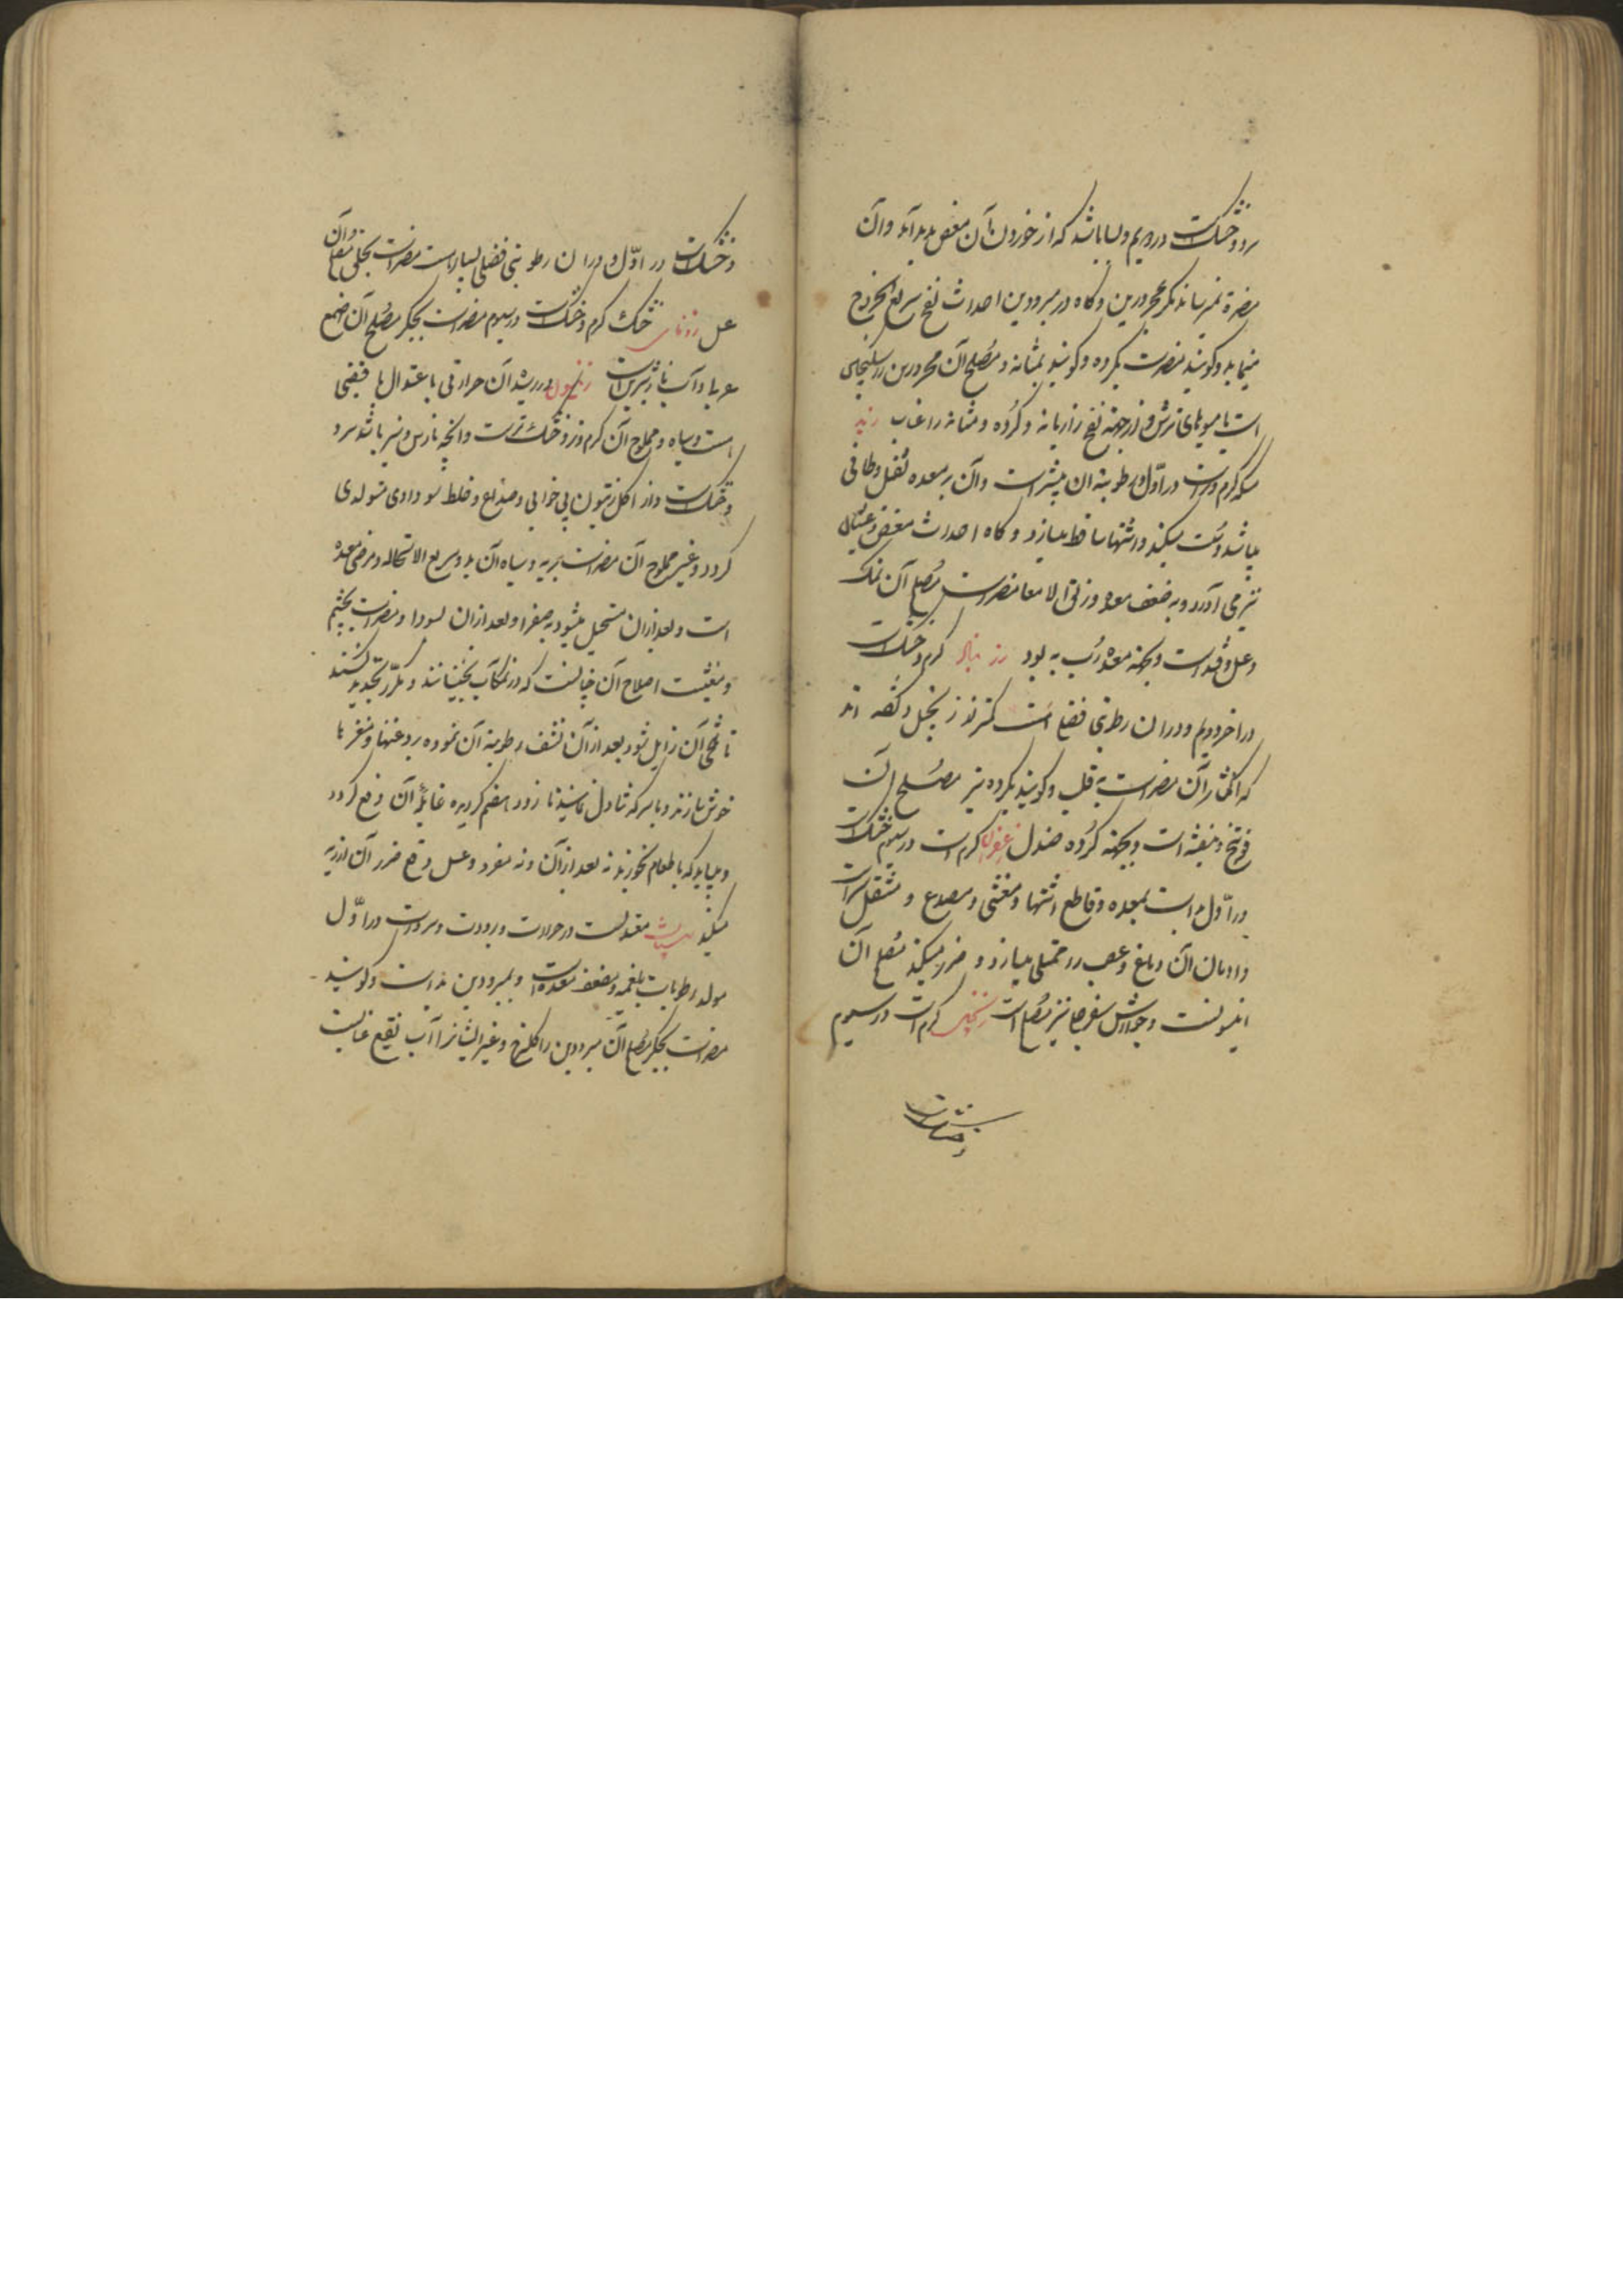 سرد و خشکست در دویم و بسا باشد که از خوردن آن مغص پدید آید و آن
مضرة نمیرساند مگر بمحرورین و گاه در مبرودین احداث نفخ سریع الخروج
مینماید و گویند مضرست بگرده و گویند بمثانه و مصلح آن محرورین را سکنجبین
است یا میوهای ترش و از جهة نفخ رازیانه و گرده و مثانه را عناب زبد
مسکه گرم و ترست در اول و رطوبة ان بیشتر است و آن بر معده ثقیل و طافی
میباشد و سست میکند و اشتها ساقط میسازد و گاه احداث مغص و غثیان
نیز می آورد و به ضعف معده و زلق الامعا مضرست مصلح آن نمک
و عسل و قند است و بجهة معده رب به بود زرنباد گرم و خشکست
در اخر دویم و در ان رطوبتی فضلی است کمتر از زنجبیل و گفته اند
که اکثار آن مضر است به قلب و گویند بگرده نیز مصلح آن
فوتنج و بنفشه است و بجهة گرده صندل زعفران گرم است در سیوم خشکست
در اول مضر است بمعده و قاطع اشتها و مغثی و مصدع و مثقل سر است
و ادمان آن دماغ و عصب را ممتلی میسازد و ضرر میکند مصلح آن
انیسونست و جوارش سفرجل نیز مصلح است زنجبیل گرم است در سیوم
و خشکست
و خشکست در اول و در ان رطوبتی فضلی بسیار است مضر است بحلق مصلح آن
عسل زوفای خشک گرم و خشکست در سیوم مضر است بجگر مصلح آن صمغ
عربی و آب انار شیرین است زیتون در رسیده آن حرارتی با عتدال با قبضی
است و سیاه و مملوح آن گرم تر و خشک ترست و انچه نارس و سبز باشد سرد
و خشکست و از اکل زیتون بی خوابی و صداع و خلط سوداوی متولد می
گردد و غیر مملوح آن مضر است بریه و سیاه آن بد و سریع الاستحاله و مرخی معده
است و بعد از ان مستحیل میشود به صفرا و بعد از ان بسودا و مضر است بچشم
و مغثیست اصلاح آن چنانست که در نمکاب بخیسانند و مکرر تجدید کنند
تا تلخی آن زایل شود بعد از آن نشف رطوبة آن نموده بروغنها و مغزها
خوش سازند و با سرکه تناول نمایند تا زود هضم گردیده غایله آن رفع گردد
و میباید که با طعام بخورند نه بعد از آن و نه مفرد و عسل دفع ضرر آن از ریه
میکند سپستان معتدلست در حرارت و برودت و تر است در اول
مولد رطوبات بلغمیه و مضعف معده است و بمبرودین بد است و گویند
مضر است بجگر مصلح آن مبرودین را گلسرخ و غیر ایشانرا آب نقیع عنابست